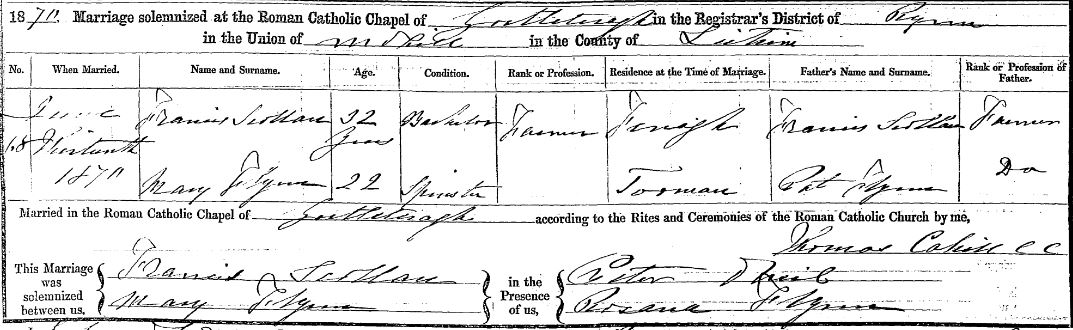 1870. Marriage solemnized at the Roman Catholic Chapel of Gortletteragh in the Registrar's District of Rynn
in the Union of Mohill in the County of Leitrim
No. When Married. Name and Surname. Age. Condition. Rank or Profession. Residence at the Time of Marriage. Father's Name and Surname. Rank or Profession of Father.
68 June Thirteenth 1870 Francis Scollan 32 years Bachelor Farmer Fearagh Francis Scollan Farmer
Mary Flynn 22 Spinster Tooman Pat Flynn Do
Married in the Roman Catholic Chapel of Gortletteragh according to the Rites and Ceremonies of the Roman Catholic Church by me,
Thomas Cahill CC
This Marriage was solemnized between us, Francis Scollan in the Presence of us, Peter
Mary Flynn Rosana Flynn